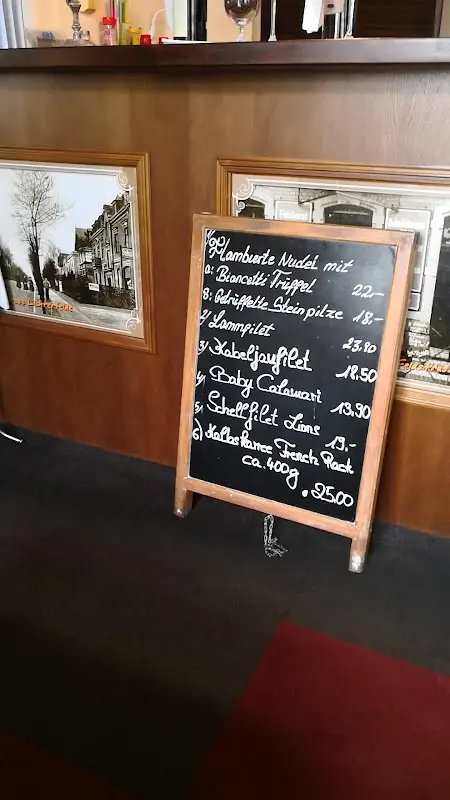 1/ Flambierte Nudel mit
a: Biancetti Trüffel 22,-
B: Getrüffelte Steinpilze 18,-
2/ Lammfilet 23,90
3/ Kabeljaufilet 18,50
4/ Baby Calamari 13,90
5/ Schellfilet Lions 19,-
6) Kalbskarree French Rack
ca. 400g
25.00